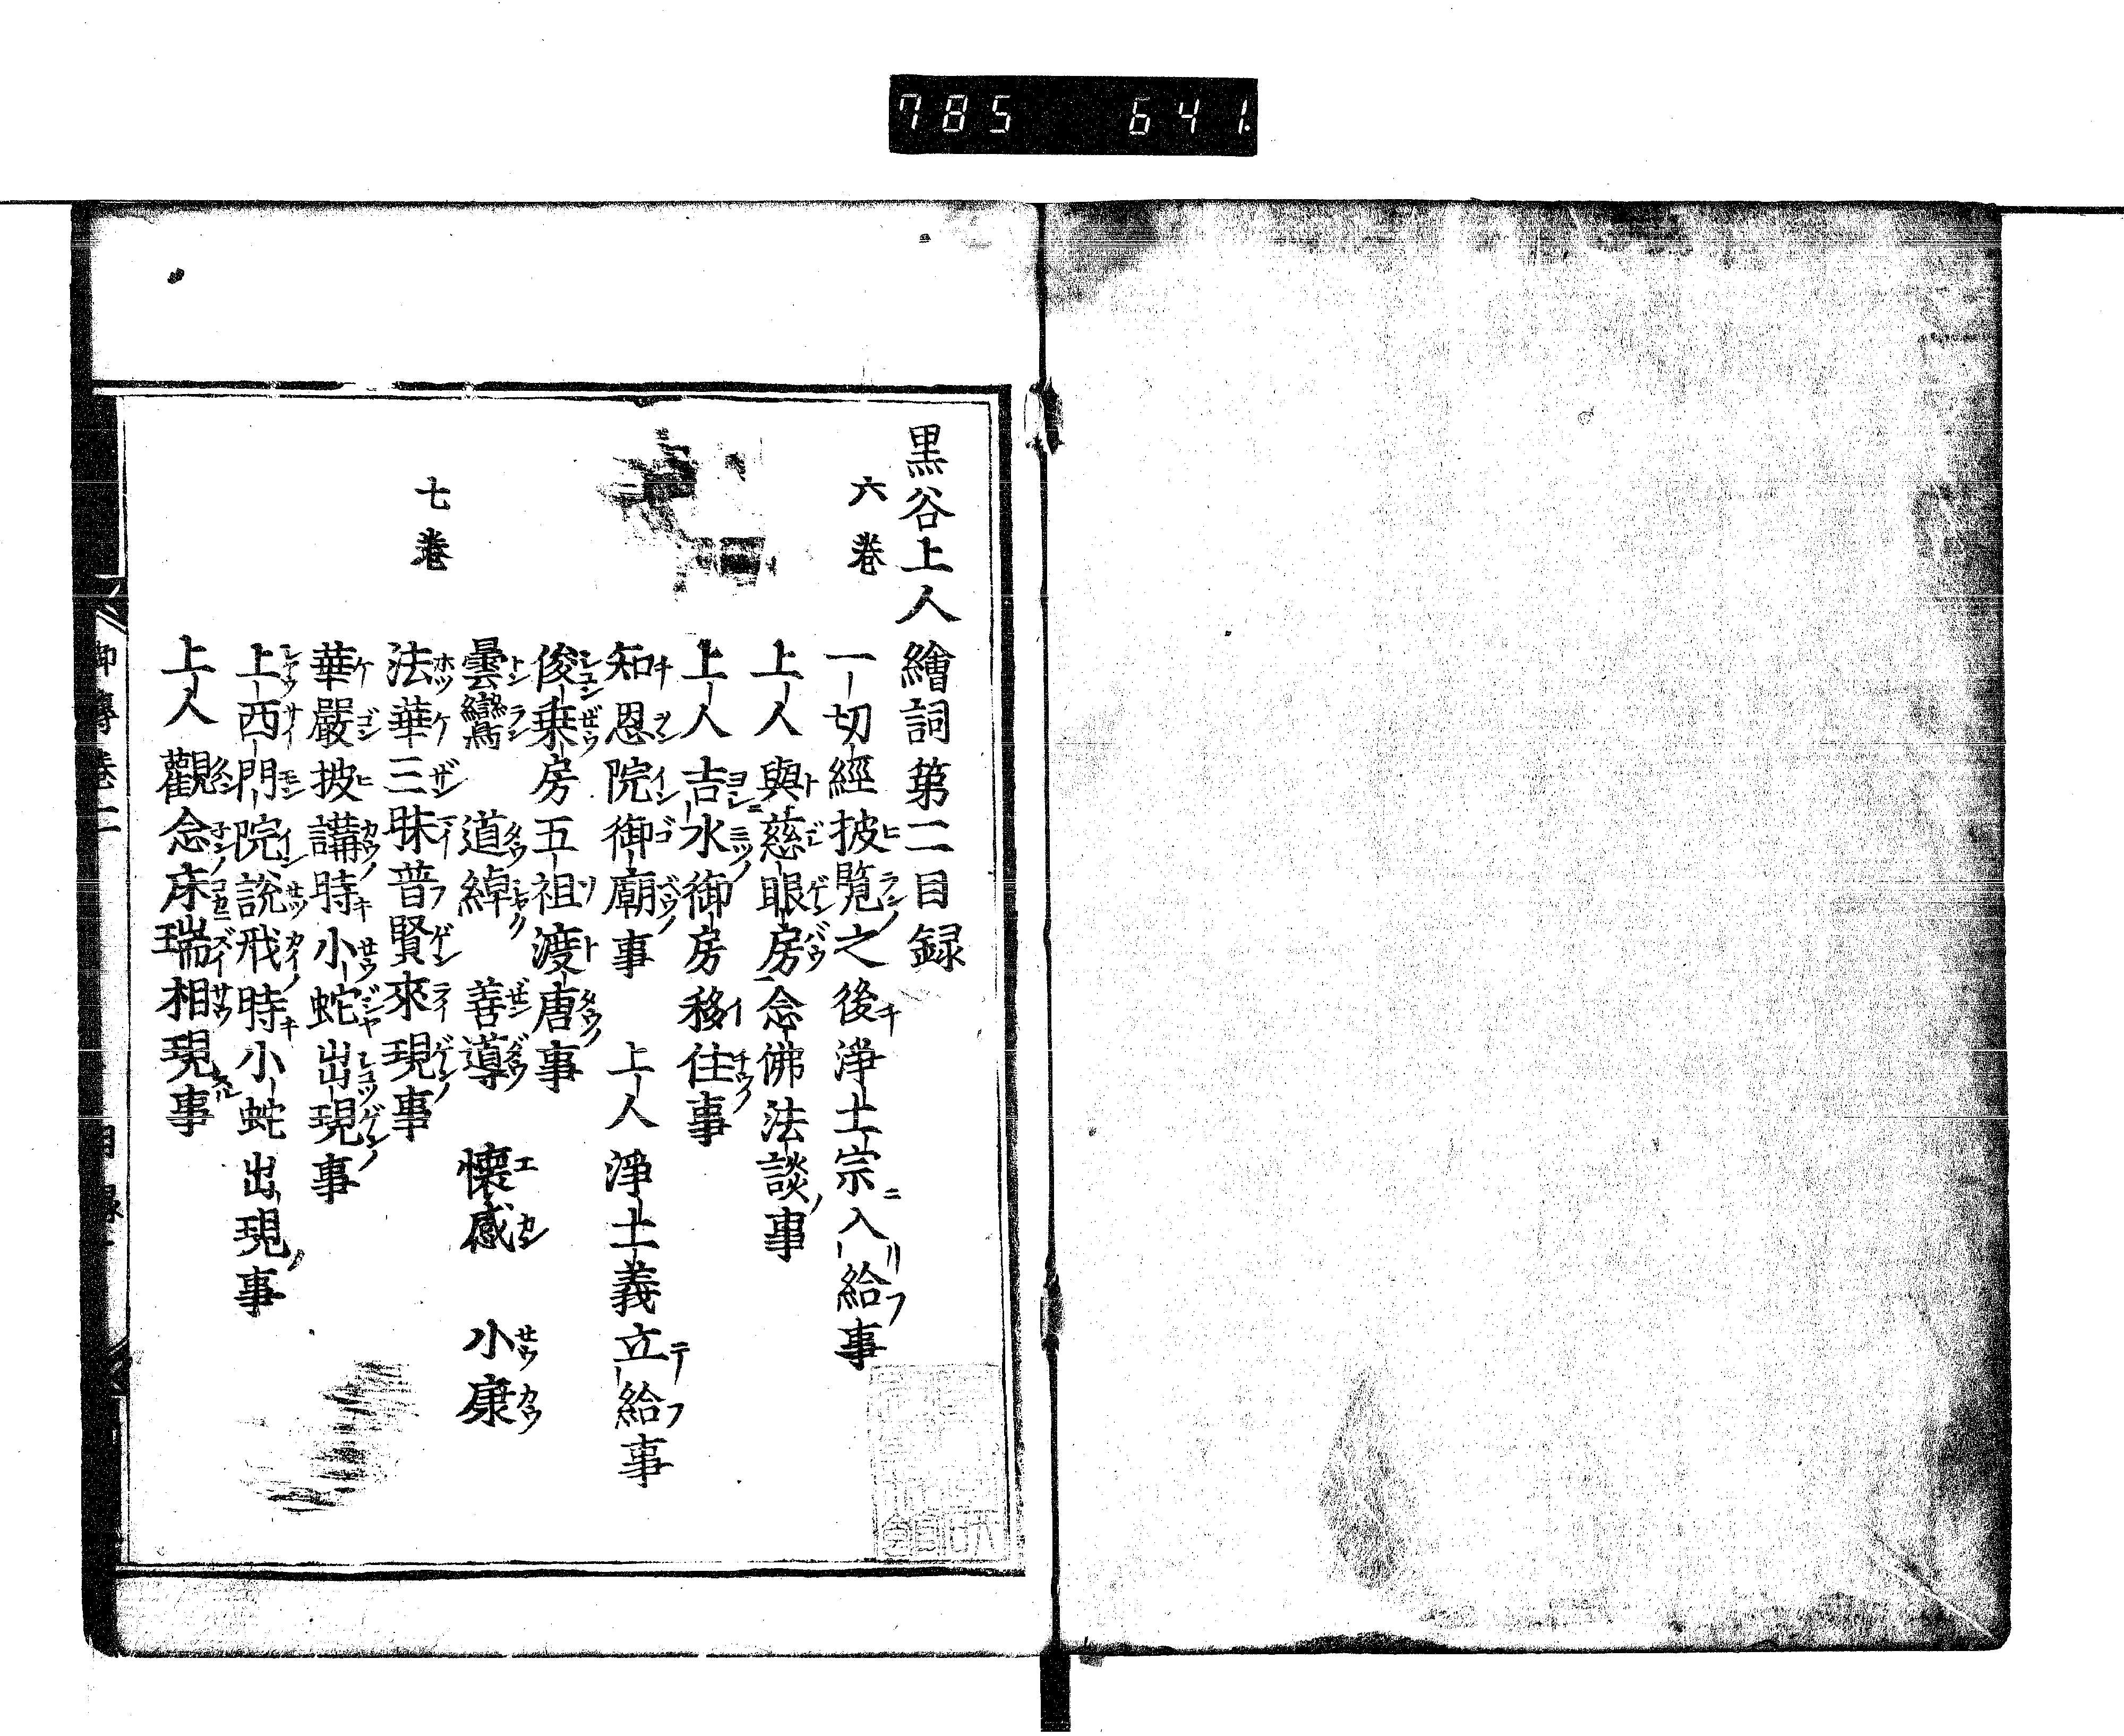 785 641.
黒谷上人繪詞第二目録
六巻
一切經披覧之後淨土宗入給事
上人與慈眼房念佛法談事
上人吉水御房移住事
知恩院御廟事 上人淨土義立給事
俊乗房五祖渡唐事
曇鸞 道綽 善導 懐感 小康
七巻
法華三昧普賢來現事
華嚴披講時小蛇出現事
上西門院説戒時小蛇出現事
上人觀念床瑞相現事
御傳巻二 目録